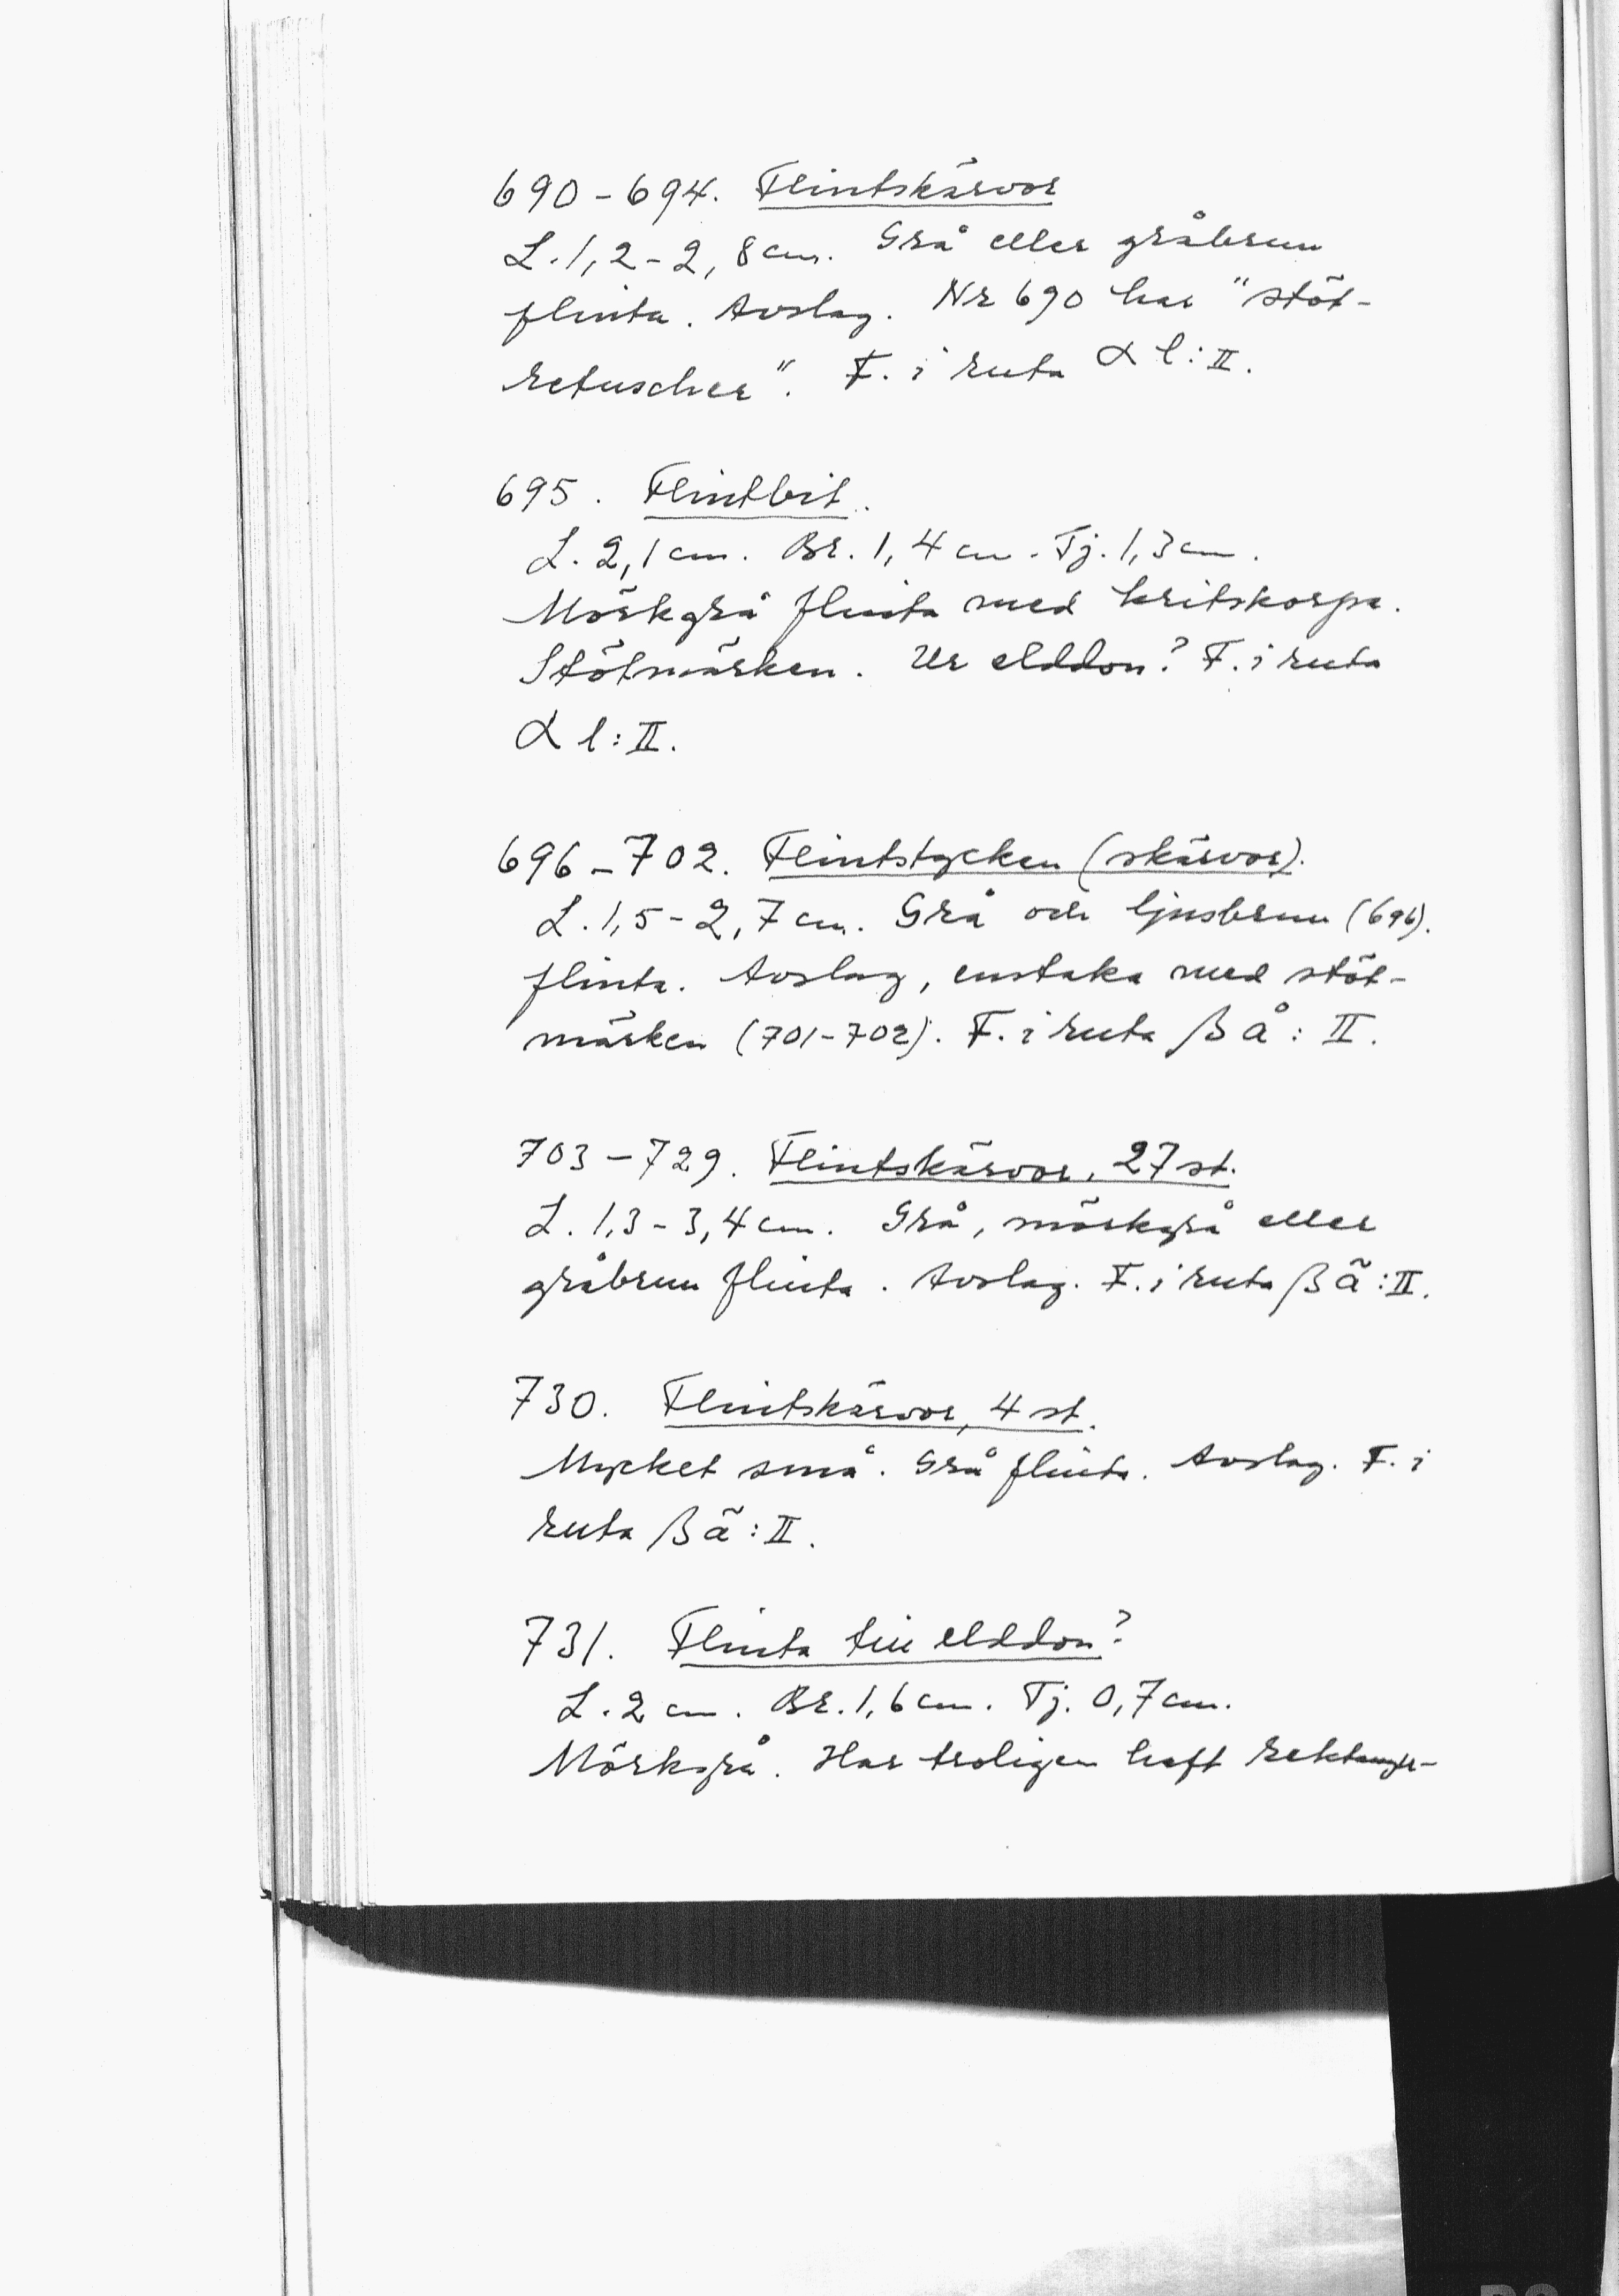 690-694. Flintskärvor
L. 1,2-2,8 cm. Grå eller gråbrun
flinta. Avslag. Nr 690 har "stöt-
retuscher". F. i ruta α l:II.
695. Flintbit.
L. 2,1 cm. Br. 1,4 cm. Tj. 1,3 cm.
Mörkgrå flinta med kritskorpa.
Stötmärken. Ur elddon? F. i ruta
α l:II.
696-702. Flintstycken (skärvor).
L. 1,5-2,7 cm. Grå och ljusbrun (696).
flinta. Avslag, enstaka med stöt-
märken (701-702). F. i ruta β å: II.
703-729. Flintskärvor, 27 st.
L. 1,3-3,4 cm. Grå, mörkgrå eller
gråbrun flinta. Avslag. F. i ruta β ä:II.
730. Flintskärvor, 4 st.
Mycket små. Grå flinta. Avslag. F. i
ruta β ä:II.
731. Flinta till elddon?
L. 2 cm. Br. 1,6 cm. Tj. 0,7 cm.
Mörkgrå. Har troligen haft rektangu-